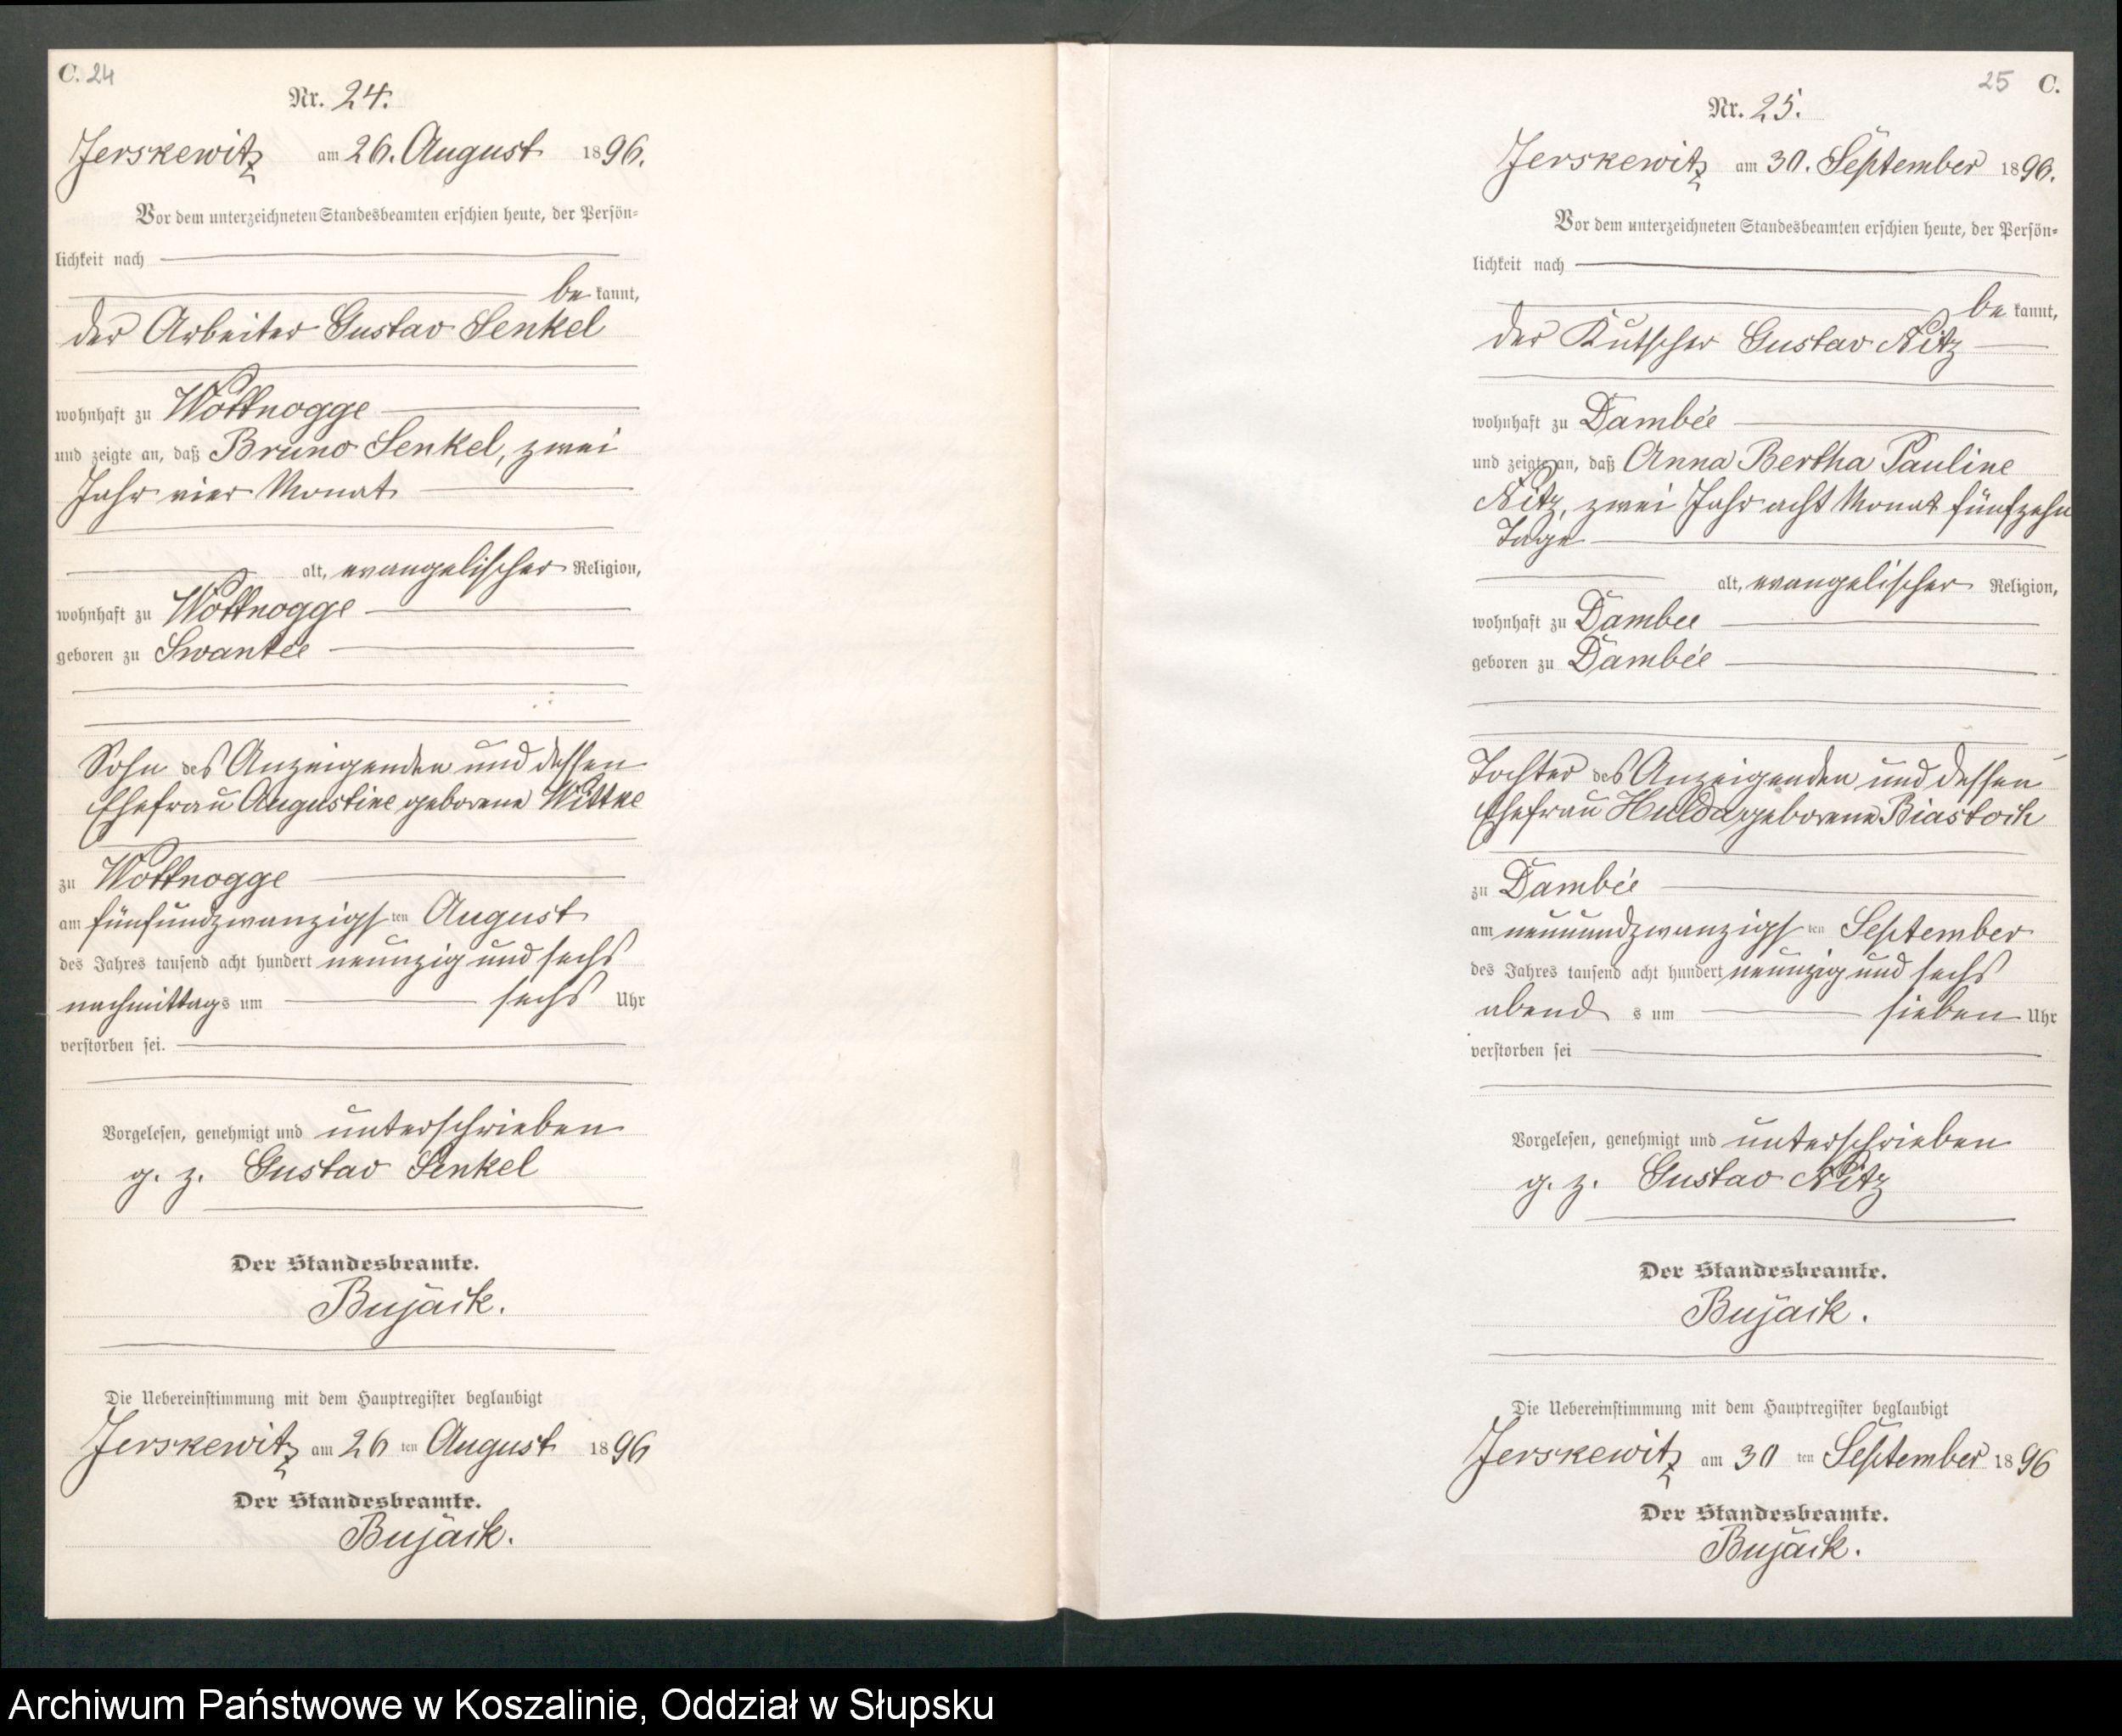 C. 24
Nr. 24.
Jerskewitz am 26. August 1896.
Vor dem unterzeichneten Standesbeamten erschien heute, der Persön-
lichkeit nach
be kannt,
der Arbeiter Gustav Senkel
wohnhaft zu Wottnogge
und zeigte an, daß Bruno Senkel, zwei
Jahr vier Monat
alt, evangelischer Religion,
wohnhaft zu Wottnogge
geboren zu Swantee
Sohn des Anzeigenden und dessen
Ehefrau Augustine geborene Wittke
zu Wottnogge
am fünfundzwanzigs ten August
des Jahres tausend acht hundert neunzig und sechs
nachmittags um sechs Uhr
verstorben sei.
Vorgelesen, genehmigt und unterschrieben
g. z. Gustav Senkel
Der Standesbeamte.
Bujack.
Die Uebereinstimmung mit dem Hauptregister beglaubigt
Jerskewitz am 26 ten August 1896
Der Standesbeamte.
Bujack.
25 C.
Nr. 25.
Jerskewitz am 30. September 1896.
Vor dem unterzeichneten Standesbeamten erschien heute, der Persön-
lichkeit nach
be kannt,
der Kutscher Gustav Nitz
wohnhaft zu Dambée
und zeigte an, daß Anna Bertha Pauline
Nitz, zwei Jahr acht Monat fünfzehn
Tage
alt, evangelischer Religion,
wohnhaft zu Dambee
geboren zu Dambée
Tochter des Anzeigenden und dessen
Ehefrau Hulda geborene Biastoch
zu Dambée
am neunundzwanzigs ten September
des Jahres tausend acht hundert neunzig und sechs
abend s um sieben Uhr
verstorben sei
Vorgelesen, genehmigt und unterschrieben
g. z. Gustav Nitz
Der Standesbeamte.
Bujack.
Die Uebereinstimmung mit dem Hauptregister beglaubigt
Jerskewitz am 30 ten September 1896
Der Standesbeamte.
Bujack.
Archiwum Państwowe w Koszalinie, Oddział w Słupsku